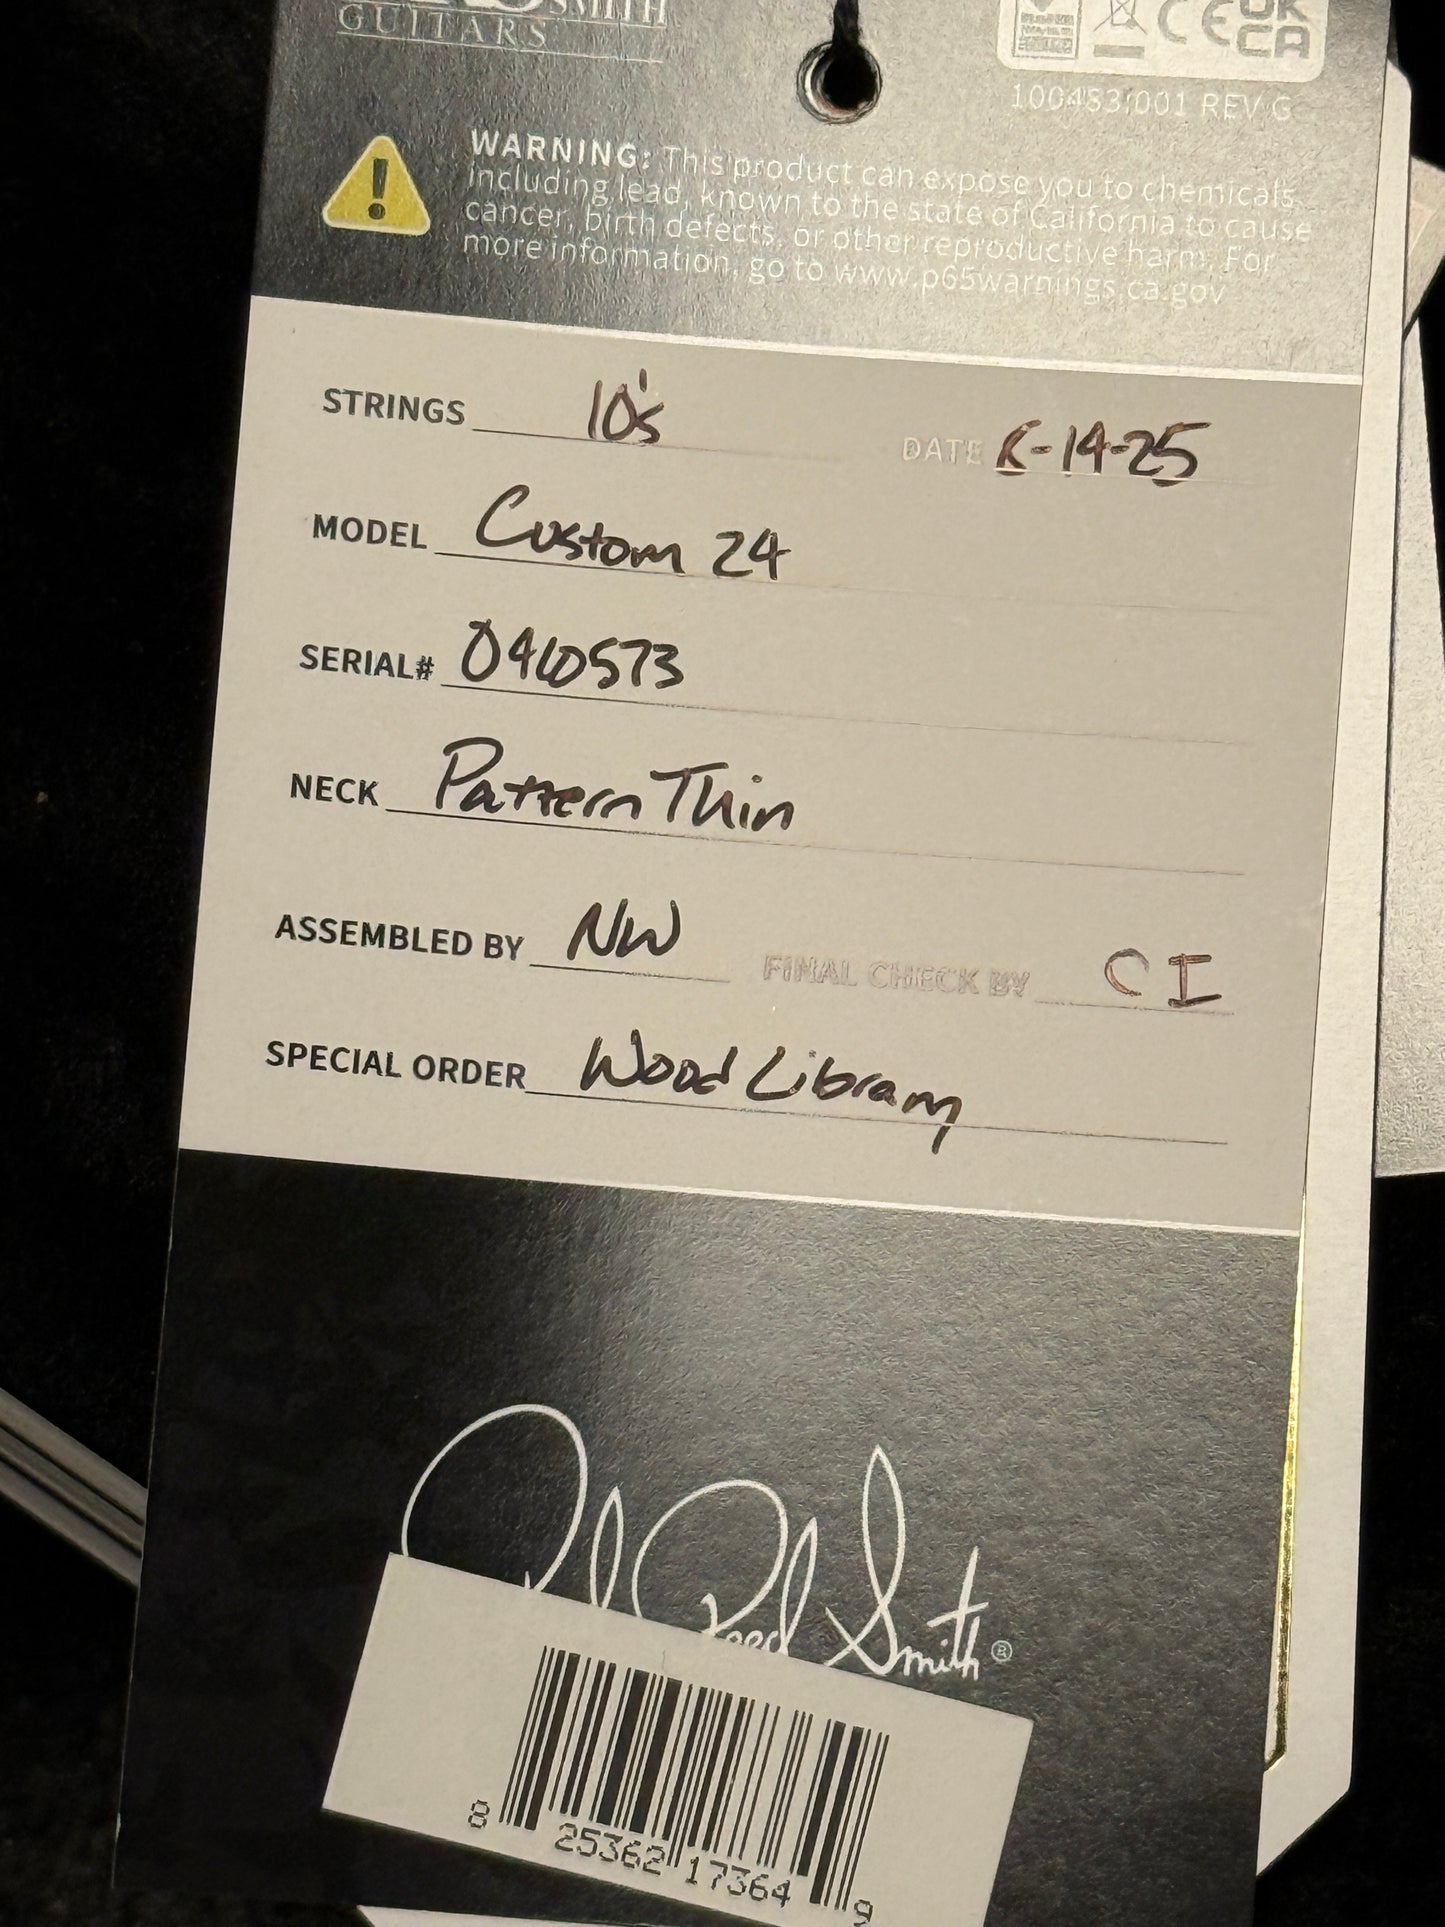 SMITH
GUITARS
CE UK
CA
100483:001 REV G
WARNING: This product can expose you to chemicals
including lead, known to the state of California to cause
cancer, birth defects, or other reproductive harm. For
more information, go to www.p65warnings.ca.gov
STRINGS 10's DATE
MODEL Custom 24
SERIAL# 0410573
NECK Pattern Thin
ASSEMBLED BY NW FINAL CHECK BY CI
SPECIAL ORDER Wood Library
Paul Reed Smith ®
8 25362 17364 9